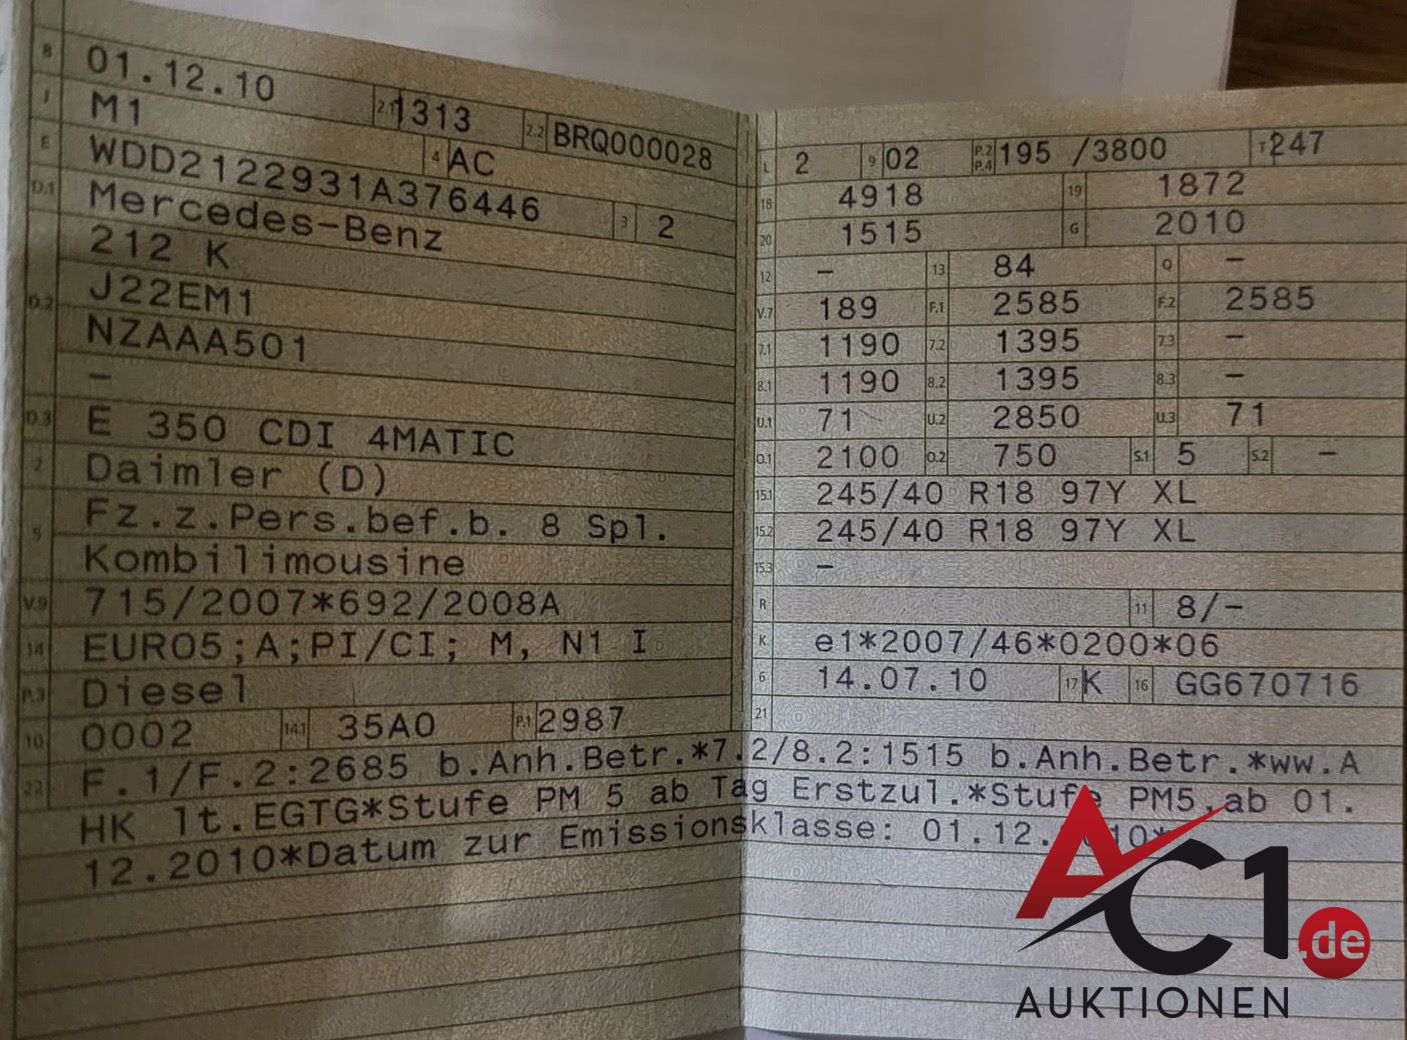 B 01.12.10 2.1 1313 2.2 BRQ000028
J M1 4 AC
E WDD2122931A376446 3 2
D.1 Mercedes-Benz
212 K
D.2 J22EM1
NZAAA501
–
D.3 E 350 CDI 4MATIC
2 Daimler (D)
5 Fz.z.Pers.bef.b. 8 Spl.
Kombilimousine
V.9 715/2007*692/2008A
14 EURO5;A;PI/CI; M, N1 I
P.3 Diesel
10 0002 14.1 35A0 P.1 2987
L 2 9 02 P.2 P.4 195 /3800 T 247
18 4918 19 1872
20 1515 G 2010
12 – 13 84 Q –
V.7 189 F.1 2585 F.2 2585
7.1 1190 7.2 1395 7.3 –
8.1 1190 8.2 1395 8.3 –
U.1 71 U.2 2850 U.3 71
O.1 2100 O.2 750 S.1 5 S.2 –
15.1 245/40 R18 97Y XL
15.2 245/40 R18 97Y XL
15.3 –
R 11 8/–
K e1*2007/46*0200*06
6 14.07.10 17 K 16 GG670716
21
22 F.1/F.2:2685 b.Anh.Betr.*7.2/8.2:1515 b.Anh.Betr.*ww.A
HK lt.EGTG*Stufe PM 5 ab Tag Erstzul.*Stufe PM5 ab 01.
12.2010*Datum zur Emissionsklasse: 01.12.2010*
AC1.de
AUKTIONEN